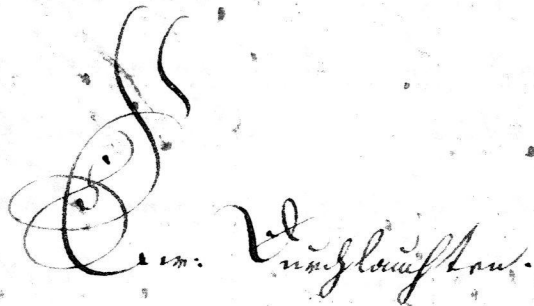 Eur: Durchlauchten.